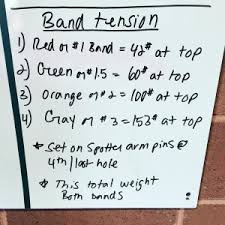 Band tension
1) Red or #1 Band = 42# at top
2) Green or #1.5 = 60# at top
3) Orange or #2 = 100# at top
4) Gray or #3 = 153# at top
* Set on Spotter arm pins @
4th/last hole
* This total weight
Both bands